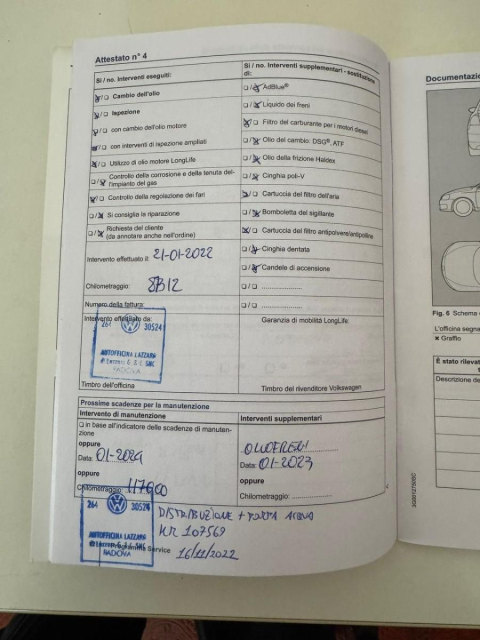 Attestato n° 4
Si / no. Interventi eseguiti:
Cambio dell'olio
Ispezione
con cambio dell'olio motore
con interventi di ispezione ampliati
Utilizzo di olio motore LongLife
Controllo della corrosione e della tenuta dell'impianto del gas
Controllo della regolazione dei fari
Si consiglia la riparazione
Richiesta del cliente
(da annotare anche nell'ordine)
Intervento effettuato il: 21-01-2022
Chilometraggio:
Numero della fattura:
Intervento effettuato da:
264 30524
AUTOFFICINA LAZZARO
PADOVA
Timbro dell'officina
Si / no. Interventi supplementari - sostituzione
di:
AdBlue®
Liquido dei freni
Filtro del carburante per i motori diesel
Olio del cambio: DSG®, ATF
Olio della frizione Haldex
Cinghia poli-V
Cartuccia del filtro dell'aria
Bomboletta del sigillante
Cartuccia del filtro antipolvere/antipolline
Cinghia dentata
Candele di accensione
Garanzia di mobilità LongLife:
Timbro del rivenditore Volkswagen
Prossime scadenze per la manutenzione
Intervento di manutenzione
in base all'indicatore delle scadenze di manuten-
zione
oppure
Data: 01-2024
oppure
Chilometraggio: 117000
Interventi supplementari
OLIO FRENI
Data: 01-2023
oppure
Chilometraggio:
264 30524
AUTOFFICINA LAZZARO
PADOVA
Service
DISTRIBUZIONE + POMPA ACQUA
KM 107569
16/11/2022
Documentazio
Fig. 6 Schema
L'officina segna
Graffio
È stato rilevat
Descrizione de